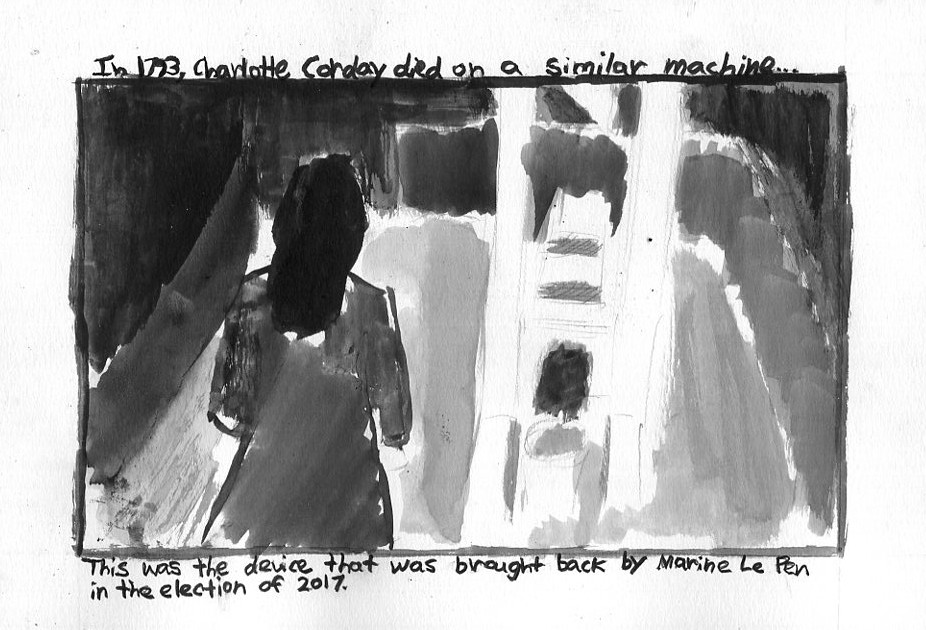 In 1793, Charlotte Corday died on a similar machine...
This was the device that was brought back by Marine Le Pen
in the election of 2017.